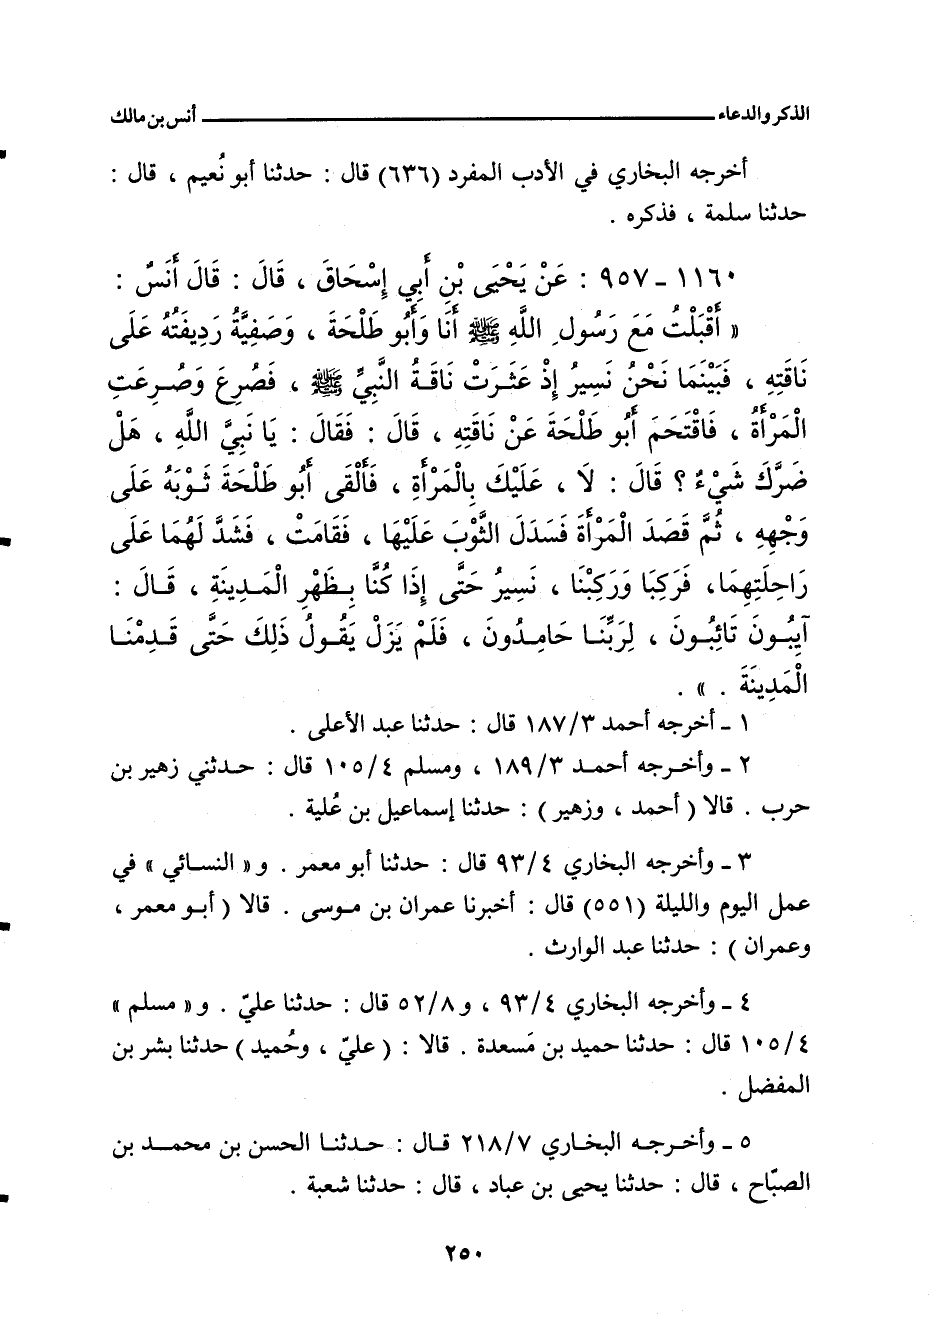 الذكر والدعاء ــــــــــــــــ أنس بن مالك
أخرجه البخاري في الأدب المفرد (٦٣٦) قال : حدثنا أبو نُعيم ، قال :
حدثنا سلمة ، فذكره .
١١٦٠ ـ ٩٥٧ : عَنْ يَحْيَى بْنِ أَبِي إِسْحَاقَ ، قَالَ : قَالَ أَنَسٌ :
« أَقْبَلْتُ مَعَ رَسُولِ اللَّهِ ﷺ أَنَا وَأَبُو طَلْحَةَ ، وَصَفِيَّةُ رَدِيفَتُهُ عَلَى
نَاقَتِهِ ، فَبَيْنَمَا نَحْنُ نَسِيرُ إِذْ عَثَرَتْ نَاقَةُ النَّبِيِّ ﷺ ، فَصُرِعَ وَصُرِعَتِ
الْمَرْأَةُ ، فَاقْتَحَمَ أَبُو طَلْحَةَ عَنْ نَاقَتِهِ ، قَالَ : فَقَالَ : يَا نَبِيَّ اللَّهِ ، هَلْ
ضَرَّكَ شَيْءٌ ؟ قَالَ : لَا ، عَلَيْكَ بِالْمَرْأَةِ ، فَأَلْقَى أَبُو طَلْحَةَ ثَوْبَهُ عَلَى
وَجْهِهِ ، ثُمَّ قَصَدَ الْمَرْأَةَ فَسَدَلَ الثَّوْبَ عَلَيْهَا ، فَقَامَتْ ، فَشَدَّ لَهُمَا عَلَى
رَاحِلَتِهِمَا، فَرَكِبَا وَرَكِبْنَا ، نَسِيرُ حَتَّى إِذَا كُنَّا بِظَهْرِ الْمَدِينَةِ ، قَالَ :
آيِبُونَ تَائِبُونَ ، لِرَبِّنَا حَامِدُونَ ، فَلَمْ يَزَلْ يَقُولُ ذَلِكَ حَتَّى قَدِمْنَا
الْمَدِينَةَ . » .
١ ـ أخرجه أحمد ١٨٧/٣ قال : حدثنا عبد الأعلى .
٢ ـ وأخرجه أحمد ١٨٩/٣ ، ومسلم ١٠٥/٤ قال : حدثني زهير بن
حرب . قالا ( أحمد ، وزهير ) : حدثنا إسماعيل بن عُلية .
٣ ـ وأخرجه البخاري ٩٣/٤ قال : حدثنا أبو معمر . و« النسائي » في
عمل اليوم والليلة (٥٥١) قال : أخبرنا عمران بن موسى . قالا ( أبو معمر ،
وعمران ) : حدثنا عبد الوارث .
٤ ـ وأخرجه البخاري ٩٣/٤ ، و٥٢/٨ قال : حدثنا عليّ . و« مسلم »
١٠٥/٤ قال : حدثنا حميد بن مَسعدة . قالا : ( عليّ ، وحُميد ) حدثنا بشر بن
المفضل .
٥ ـ وأخرجه البخاري ٢١٨/٧ قال : حدثنا الحسن بن محمد بن
الصبّاح ، قال : حدثنا يحيى بن عباد ، قال : حدثنا شعبة .
٢٥٠